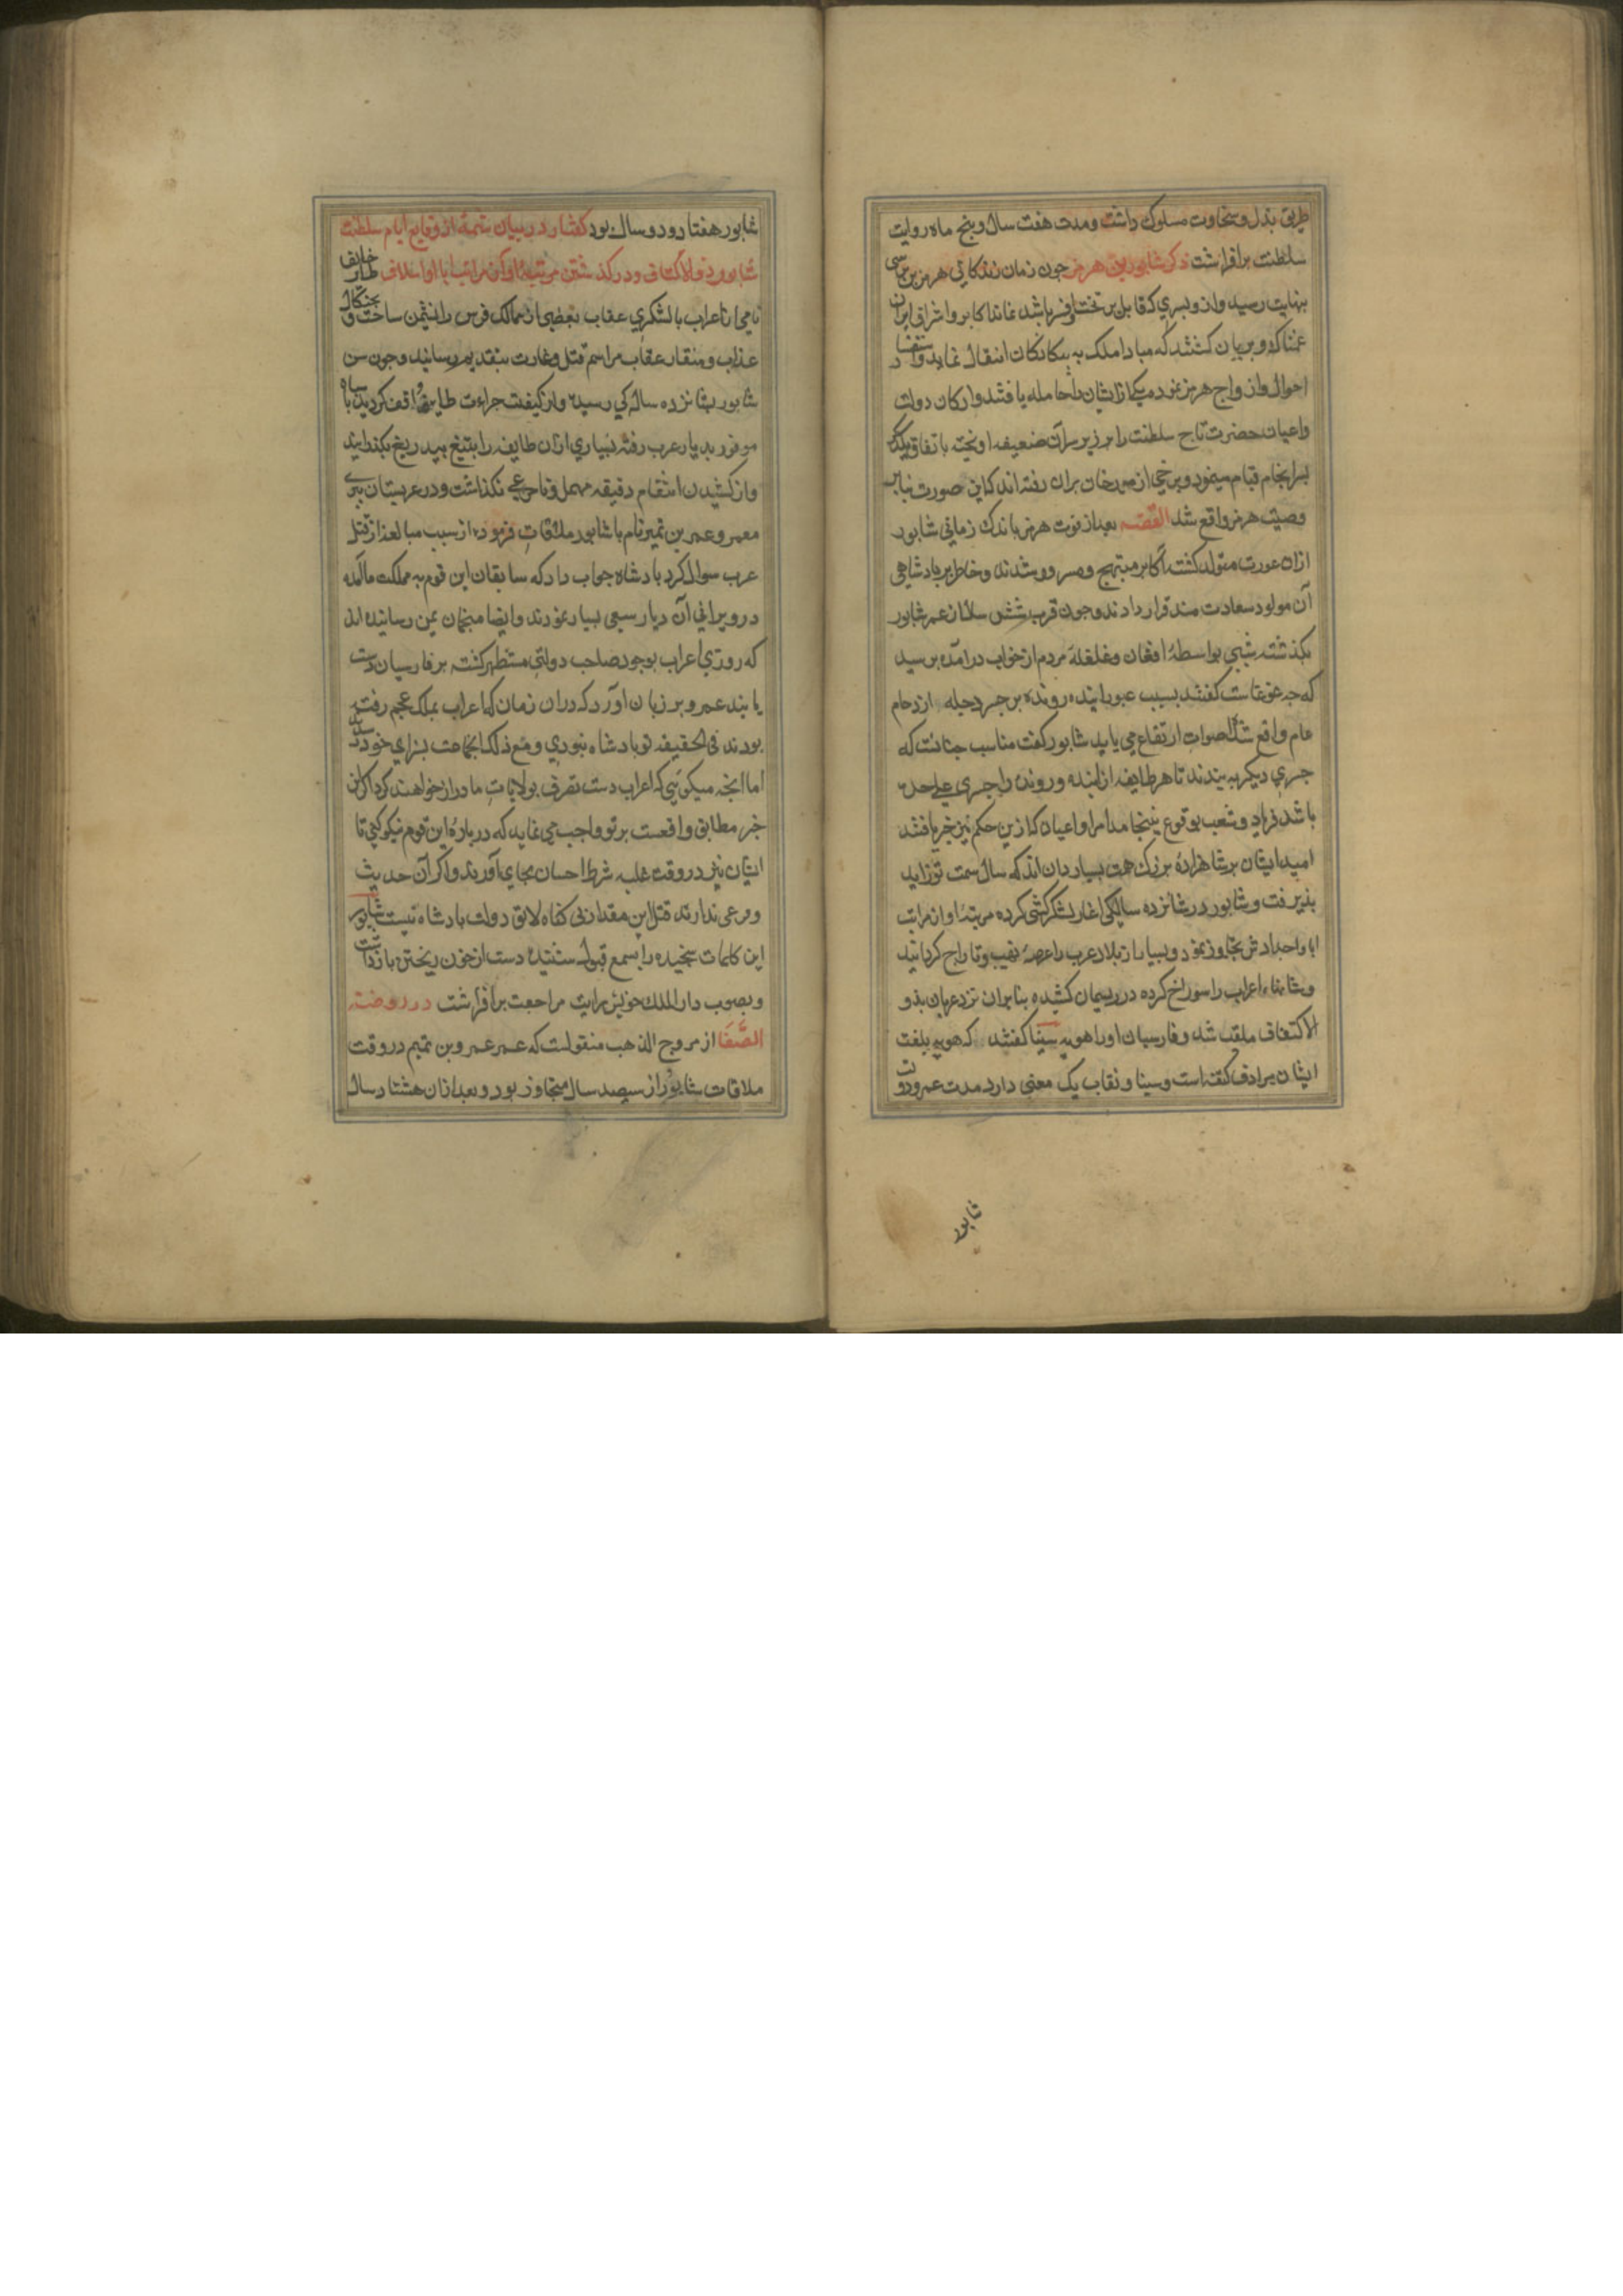 طریق بذل و سخاوت مسلوک داشت و مدت هفت سال و پنج ماه روایت
سلطنت برافراشت ذکر شابور بن هرمز چون زمان زندکانی هرمز بن نرسی
بنهایت رسید و از و پسری که قابل بر تخت و افسر باشد نماند اکابر و اشراف ایران
غمناک و بریان کشتند که مبادا ملک به بیکانکان انتقال نماید و استفسار
احوال ازواج هرمز نموده یکی از ایشان را حامله یافتند و ارکان دولت
و اعیان حضرت تاج سلطنت را بر زبر سر آن ضعیفه اویخته باتفاق یکدیکر
بسرانجام قیام مینمود و برخی از مورخان بران رفته اند که این صورت بنابر
وصیت هرمز واقع شد القصه بعد از فوت هرمز باندک زمانی شابور
ازان عورت متولد کشت اکابر مبتهج و مسرور شدند و خاطر بر بادشاهی
آن مولود سعادت مند قرار دادند و چون قریب شش سال از عمر شابور
بکذشت شبی بواسطهٔ افغان و غلغلهٔ مردم از خواب درآمده برسید
که چه غوغاست کفتند بسبب عبور اینده و رونده بر جسر دجله ازدحام
عام واقع شده اصوات ارتفاع می یابد شابور کفت مناسب چنانست که
جسری دیکر به بندند تا هر طایفه از اینده و رونده را جسری علی حده
باشد و فریاد و شغب بوقوع نینجامد امرا و اعیان که ازین حکم نیز خبر یافتند
امید ایشان بر شاهزادهٔ بزرک همت بسیار دان اندکه سال سمت تزاید
بذیرفت و شابور در شانزده سالکی اغاز لشکرکشی کرده مرتبهٔ او از مراتب
ابا و اجدادش تجاوز نمود و بسیار از بلاد عرب را عرصهٔ نهیب و تاراج کردانید
و شانهاء اعراب را سوراخ کرده در ریسمان کشیده بنابران نزد عربان بذو
الاکتفاف ملقب شد و فارسیان او را هویه سینا کفتند که هویه بلغت
ایشان مرادف کتف است و سینا و نقاب یک معنی دارد مدت عمر و دولت
شابور
شابور هفتاد و دو سال بود کفتار در بیان تتمهٔ از وقایع ایام سلطنت
شابور ذو الاکتاف و در کذشتن مرتبهٔ او از مراتب ابا و اسلاف طایف
تامی از اعراب بالشکری عقاب بعضی از ممالک فرس را نشیمن ساخت و بچنکال
عذاب و منقار عقاب مراسم قتل و غارت بتقدیم رسانید و چون سن
شابور بشانزده سالکی رسید و از کیفیت جراءت طایفه واقف کردید با سپاه
موفور بدیار عرب رفته بسیاری ازان طایفه را بتیغ بیدریغ بکذرانید
و از کشیدن انتقام دقیقه مهمل و نامرعی نکذاشت و در عربستان بیری
معمر و عمرو بن تمیم نام با شابور ملاقات فرموده از سبب مبالغه از قتل
عرب سوال کرد بادشاه جواب داد که سابقان این قوم به مملکت ما آمده
در ویرانی آن دیار سعی بسیار نمودند و ایضا منجمان بمن رسانیده اند
که روزی اعراب بوجود صاحب دولتی مستظهر کشته بر فارسیان دست
یابند عمرو بر زبان اورد که دران زمان که اعراب بملک عجم رفته
بودند فی الحقیقه تو بادشاه نبودی و مع ذلک انجماعت بسزای خود رسیدند
اما انچه میکویی که اعراب دست تصرف بولایات ما دراز خواهند کرد اکر این
خبر مطابق واقعست بر تو واجب می نماید که در بارهٔ این قوم نیکویی تا
ایشان نیز در وقت غلبه شرط احسان بجای آورند و اکر آن حدیث
و مرعی ندارند قتل این مقدار بی کناه لایق دولت بادشاه نیست شابور
این کلمات سنجیده را بسمع قبول شنیده دست از خون ریختن بازداشت
و بصوب دار الملک خویش رایت مراجعت برافراشت در روضة
الصفا از مروج الذهب منقولست که عمر عمرو بن تمیم در وقت
ملاقات شابور از سیصد سال متجاوز بود و بعد ازان هشتاد سال